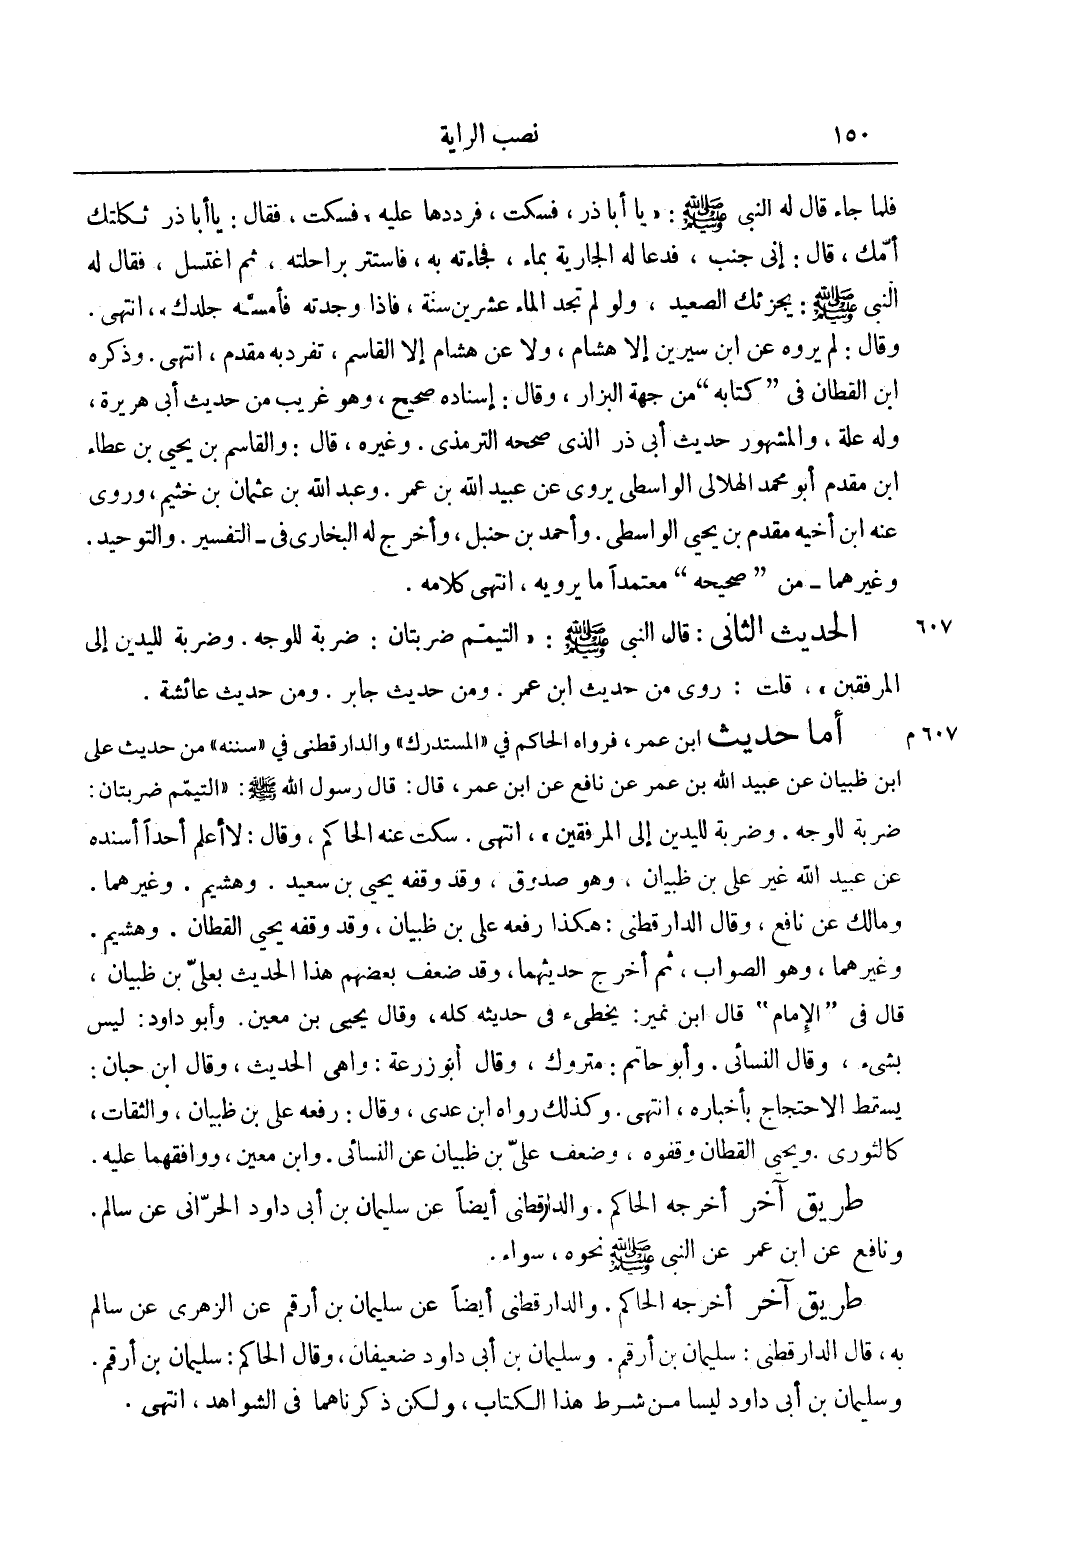 ١٥٠ نصب الراية
فلما جاء قال له النبي ﷺ : « يا أبا ذر ، فسكت ، فرددها عليه ، فسكت ، فقال : يا أبا ذر ثكلتك
أمّك ، قال : إنى جنب ، فدعا له الجارية بماء ، فجاءته به ، فاستتر براحلته ، ثم اغتسل ، فقال له
النبي ﷺ : يجزئك الصعيد ، ولو لم تجد الماء عشرين سنة ، فاذا وجدته فأمسّه جلدك » ، انتهى .
وقال : لم يروه عن ابن سيرين إلا هشام ، ولا عن هشام إلا القاسم ، تفرد به مقدم ، انتهى . وذكره
ابن القطان فى ” كتابه “ من جهة البزار ، وقال : إسناده صحيح ، وهو غريب من حديث أبى هريرة ،
وله علة ، والمشهور حديث أبى ذر الذى صححه الترمذى . وغيره ، قال : والقاسم بن يحيى بن عطاء
ابن مقدم أبو محمد الهلالى الواسطى يروى عن عبيد الله بن عمر . وعبد الله بن عثمان بن خثيم ، وروى
عنه ابن أخيه مقدم بن يحيى الواسطى . وأحمد بن حنبل ، وأخرج له البخارى فى ــ التفسير . والتوحيد .
وغيرهما ــ من ” صحيحه “ معتمداً ما يرويه ، انتهى كلامه .
٦٠٧ الحديث الثانى : قال النبي ﷺ : « التيمّم ضربتان : ضربة للوجه . وضربة لليدين إلى
المرفقين » ، قلت : روى من حديث ابن عمر . ومن حديث جابر . ومن حديث عائشة .
٦٠٧ م أما حديث ابن عمر، فرواه الحاكم في «المستدرك» والدارقطنى في «سننه» من حديث على
ابن ظبيان عن عبيد الله بن عمر عن نافع عن ابن عمر، قال: قال رسول الله ﷺ: «التيمّم ضربتان:
ضربة للوجه . وضربة لليدين إلى المرفقين » ، انتهى . سكت عنه الحاكم ، وقال : لا أعلم أحداً أسنده
عن عبيد الله غير على بن ظبيان ، وهو صدوق ، وقد وقفه يحيى بن سعيد . وهشيم . وغيرهما .
ومالك عن نافع ، وقال الدارقطنى : هكذا رفعه على بن ظبيان ، وقد وقفه يحيى القطان . وهشيم .
وغيرهما ، وهو الصواب ، ثم أخرج حديثهما، وقد ضعف بعضهم هذا الحديث بعلىّ بن ظبيان ،
قال فى ” الإمام “ قال ابن نمير: يخطىء فى حديثه كله، وقال يحيى بن معين. وأبو داود: ليس
بشىء ، وقال النسائى . وأبو حاتم : متروك ، وقال أبو زرعة : واهى الحديث ، وقال ابن حبان :
يسقط الاحتجاج بأخباره ، انتهى . وكذلك رواه ابن عدى ، وقال : رفعه على بن ظبيان ، والثقات ،
كالثورى . ويحيى القطان وقفوه ، وضعف علىّ بن ظبيان عن النسائى . وابن معين ، ووافقهما عليه .
طريق آخر أخرجه الحاكم . والدارقطنى أيضاً عن سليمان بن أبى داود الحرّانى عن سالم .
ونافع عن ابن عمر عن النبي ﷺ نحوه ، سواء .
طريق آخر أخرجه الحاكم . والدارقطنى أيضاً عن سليمان بن أرقم عن الزهرى عن سالم
به ، قال الدارقطنى : سليمان بن أرقم . وسليمان بن أبى داود ضعيفان ، وقال الحاكم : سليمان بن أرقم .
وسليمان بن أبى داود ليسا من شرط هذا الكتاب ، ولكن ذكرناهما فى الشواهد ، انتهى .